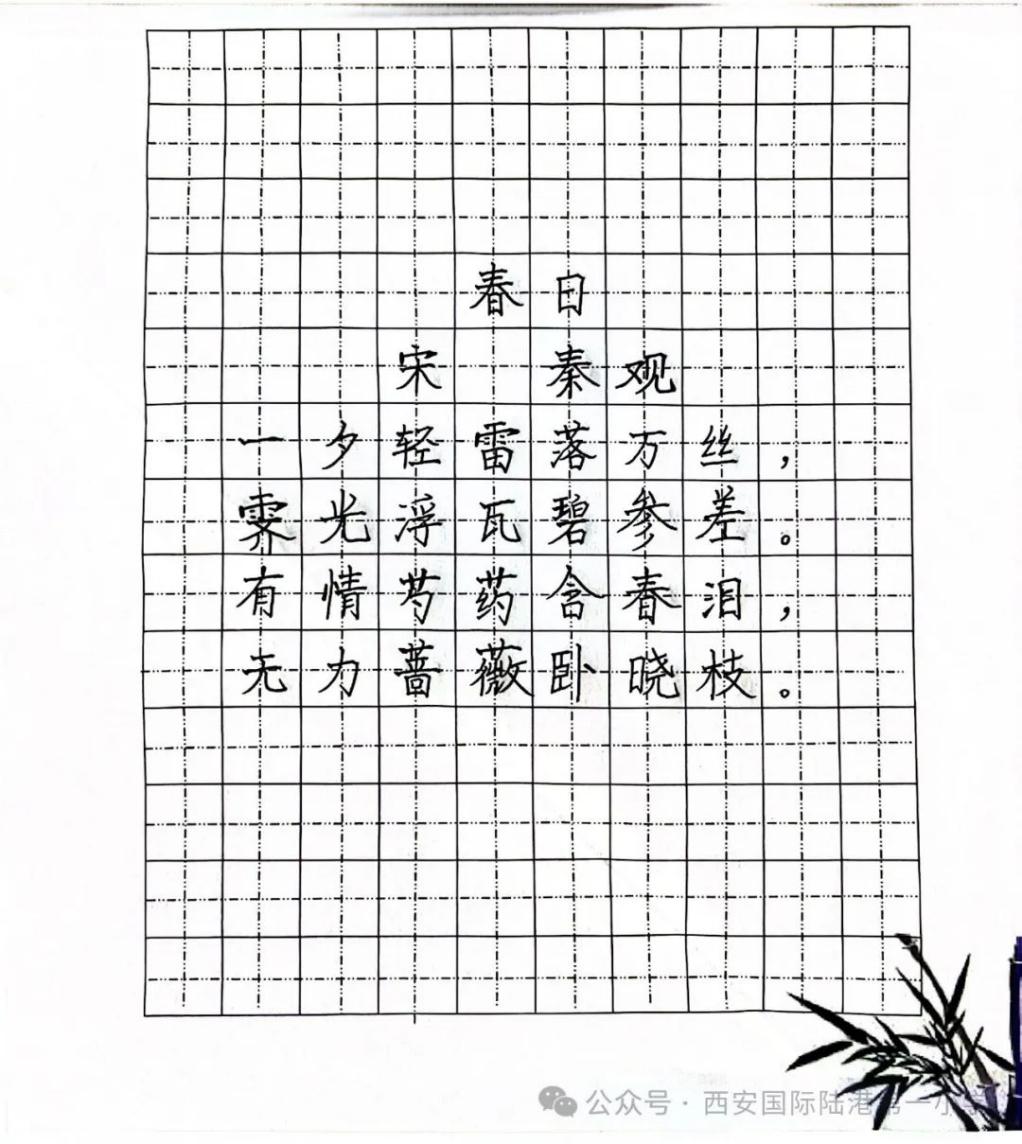 春日
宋 秦观
一夕轻雷落万丝，
霁光浮瓦碧参差。
有情芍药含春泪，
无力蔷薇卧晓枝。
公众号·西安国际陆港第一小学